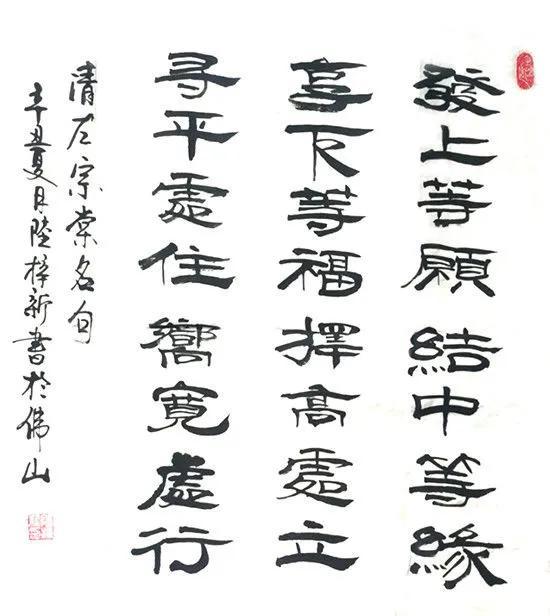 發上等願結中等緣
享下等福擇高處立
寻平處住嚮寬處行
清左宗棠名句
辛丑夏日陸梓新書於佛山